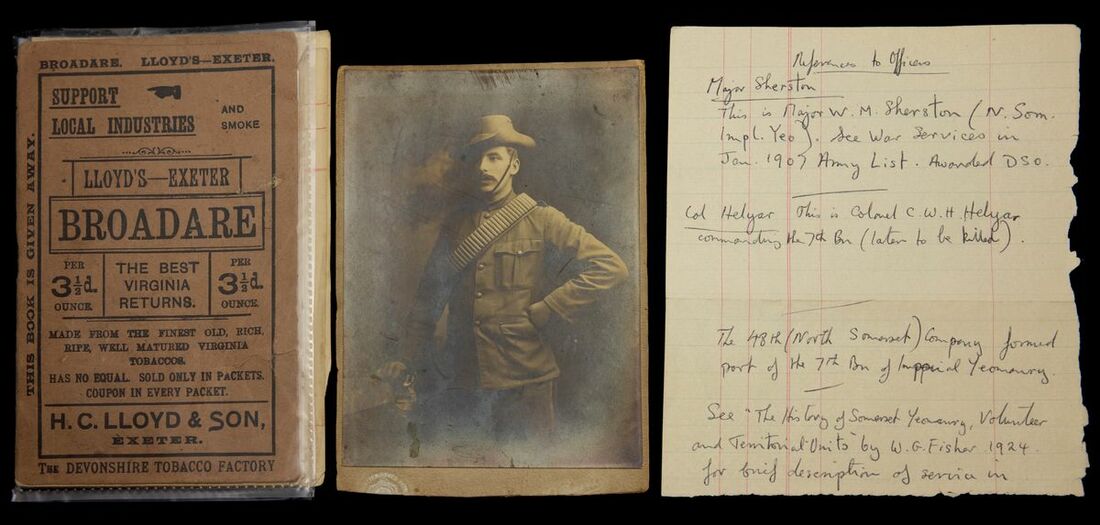 BROADARE. LLOYD'S—EXETER.
SUPPORT
LOCAL INDUSTRIES
AND
SMOKE
LLOYD'S—EXETER
BROADARE
PER
3½d.
OUNCE.
THE BEST
VIRGINIA
RETURNS.
PER
3½d.
OUNCE.
MADE FROM THE FINEST OLD, RICH,
RIPE, WELL MATURED VIRGINIA
TOBACCOS.
HAS NO EQUAL. SOLD ONLY IN PACKETS.
COUPON IN EVERY PACKET.
H. C. LLOYD & SON,
EXETER.
THE DEVONSHIRE TOBACCO FACTORY
THIS BOOK IS GIVEN AWAY.
References to Officers
Major Sherston
This is Major W. M. Sherston (N. Som.
Impl. Yeo). See War Services in
Jan. 1907 Army List. Awarded DSO.
Col Helyar This is Colonel C. W. H. Helyar
commanding the 7th Bn (later to be killed).
The 48th (North Somerset) Company formed
part of the 7th Bn of Imperial Yeomanry.
See "The History of Somerset Yeomanry, Volunteer
and Territorial Units" by W. G. Fisher 1924
for brief description of service in